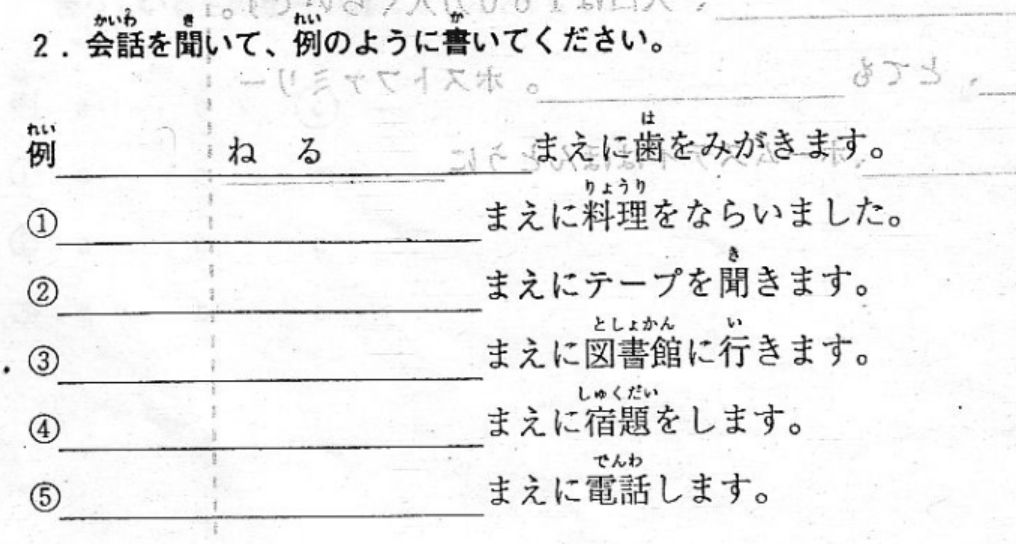 2．会話を聞いて、例のように書いてください。
例 ねる まえに歯をみがきます。
① まえに料理をならいました。
② まえにテープを聞きます。
③ まえに図書館に行きます。
④ まえに宿題をします。
⑤ まえに電話します。